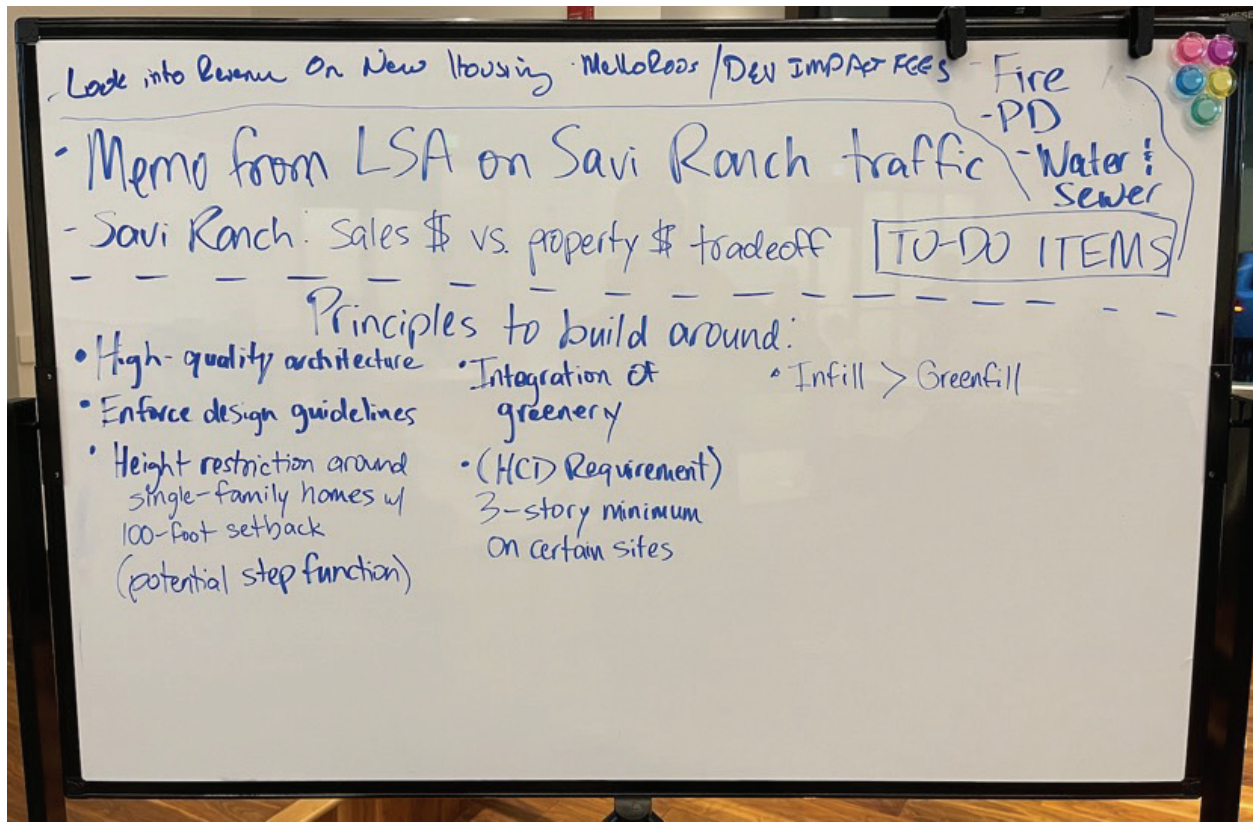 - Look into Revenue On New Housing - MelloRoos / DEV IMPACT FEES
- Fire
- PD
- Water &
Sewer
• Memo from LSA on Savi Ranch traffic
- Savi Ranch: Sales $ vs. property $ tradeoff
TO-DO ITEMS
Principles to build around:
• High-quality architecture
• Enforce design guidelines
• Height restriction around
single-family homes w/
100-foot setback
(potential step function)
• Integration of
greenery
• (HCD Requirement)
3-story minimum
on certain sites
• Infill > Greenfill